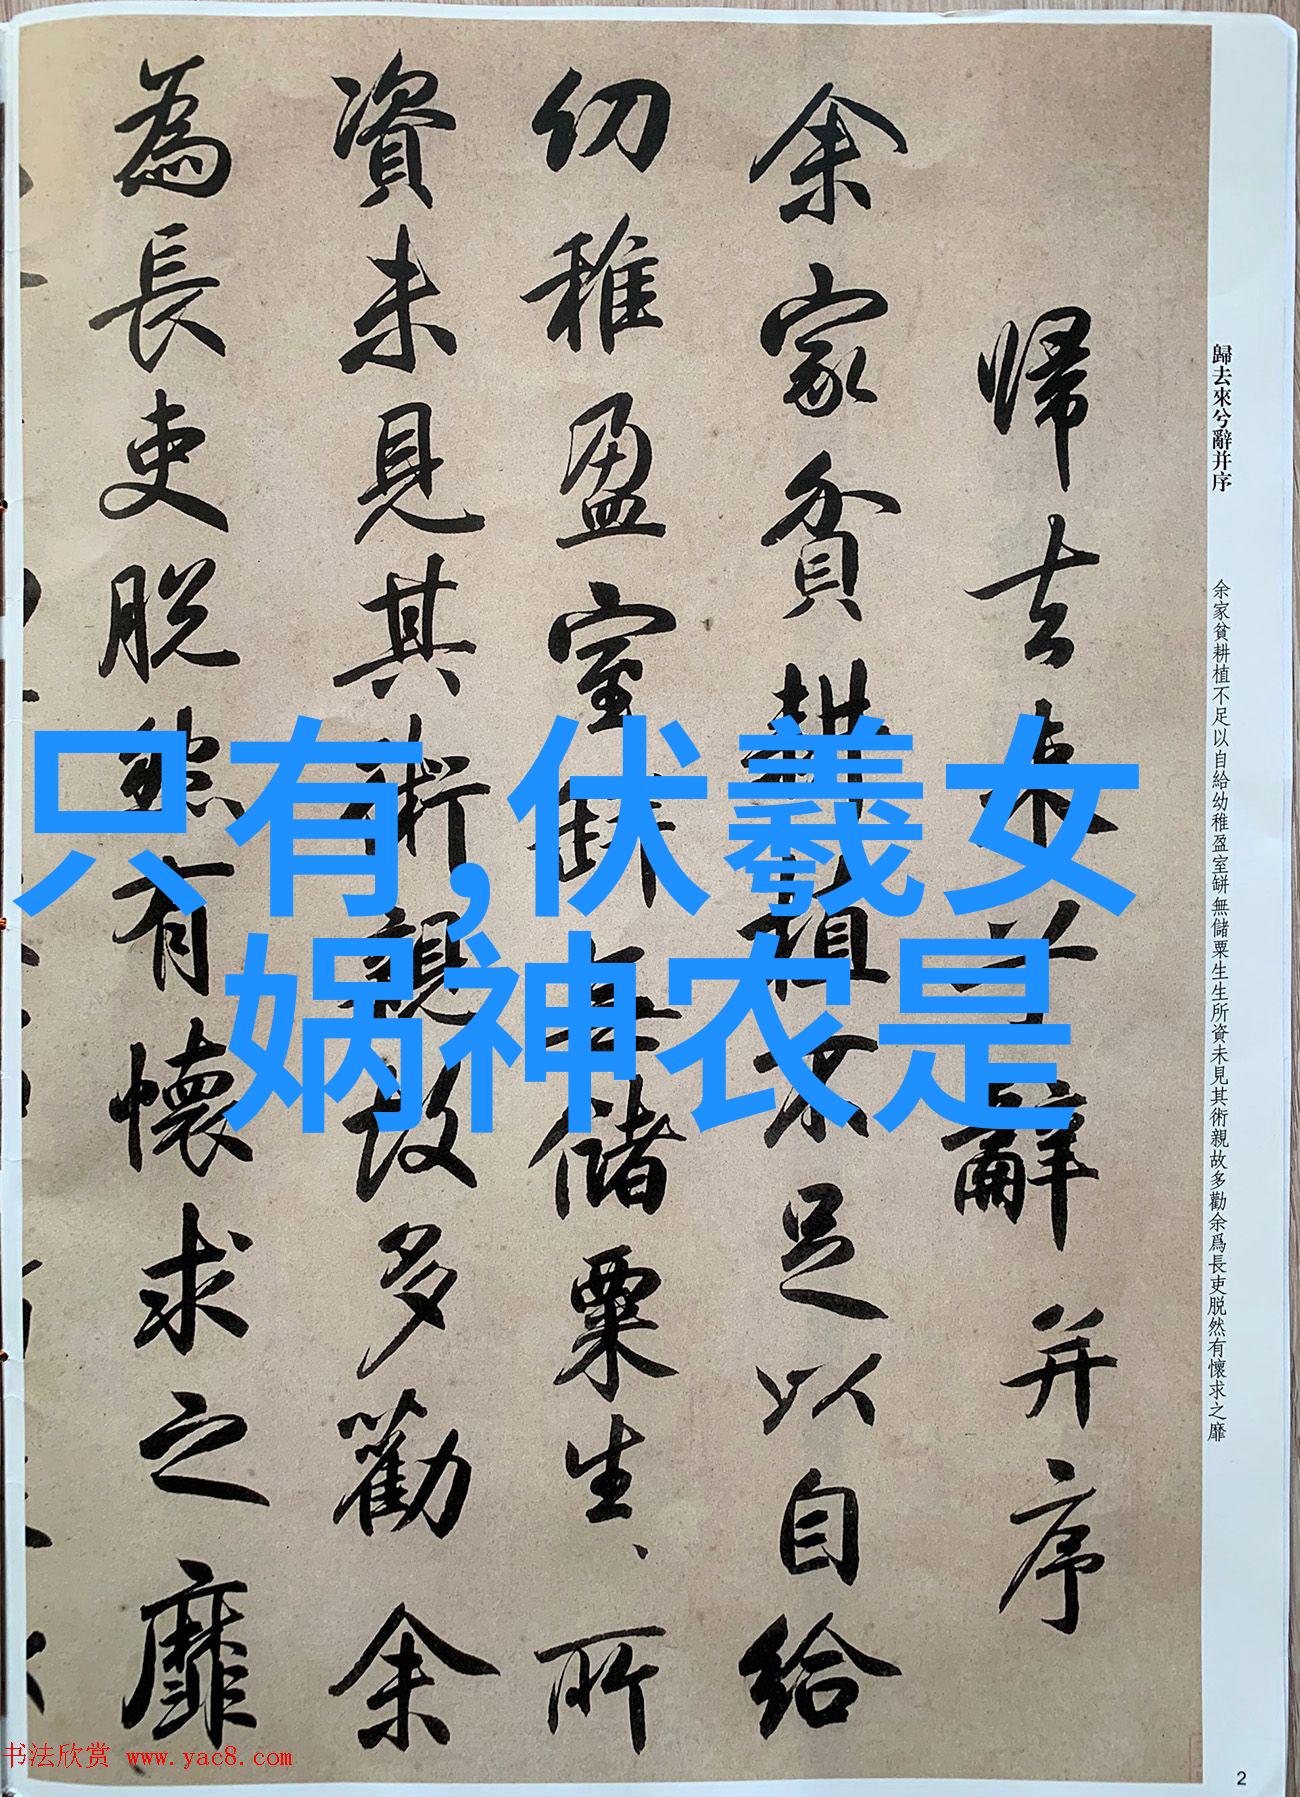 只有,伏羲女
娲神农是
歸去來兮辭并序
余家貧耕植不足以自給幼稚盈室缾無儲粟生生所資未見其術親故多勸余爲長吏脱然有懷求之靡
帰去来兮辭并序
余家貧耕植不足以自給
幼稚盈室缾無儲粟生、所
資未見其術親故多勸余
為長吏脱然有懷求之靡
书法欣赏 www.yac8.com
2